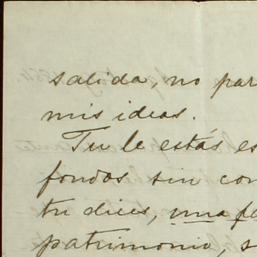 salida, no par
mis ideas.
Tu le estás es
fondos sin con
tu dices, una fa
patrimonio, s